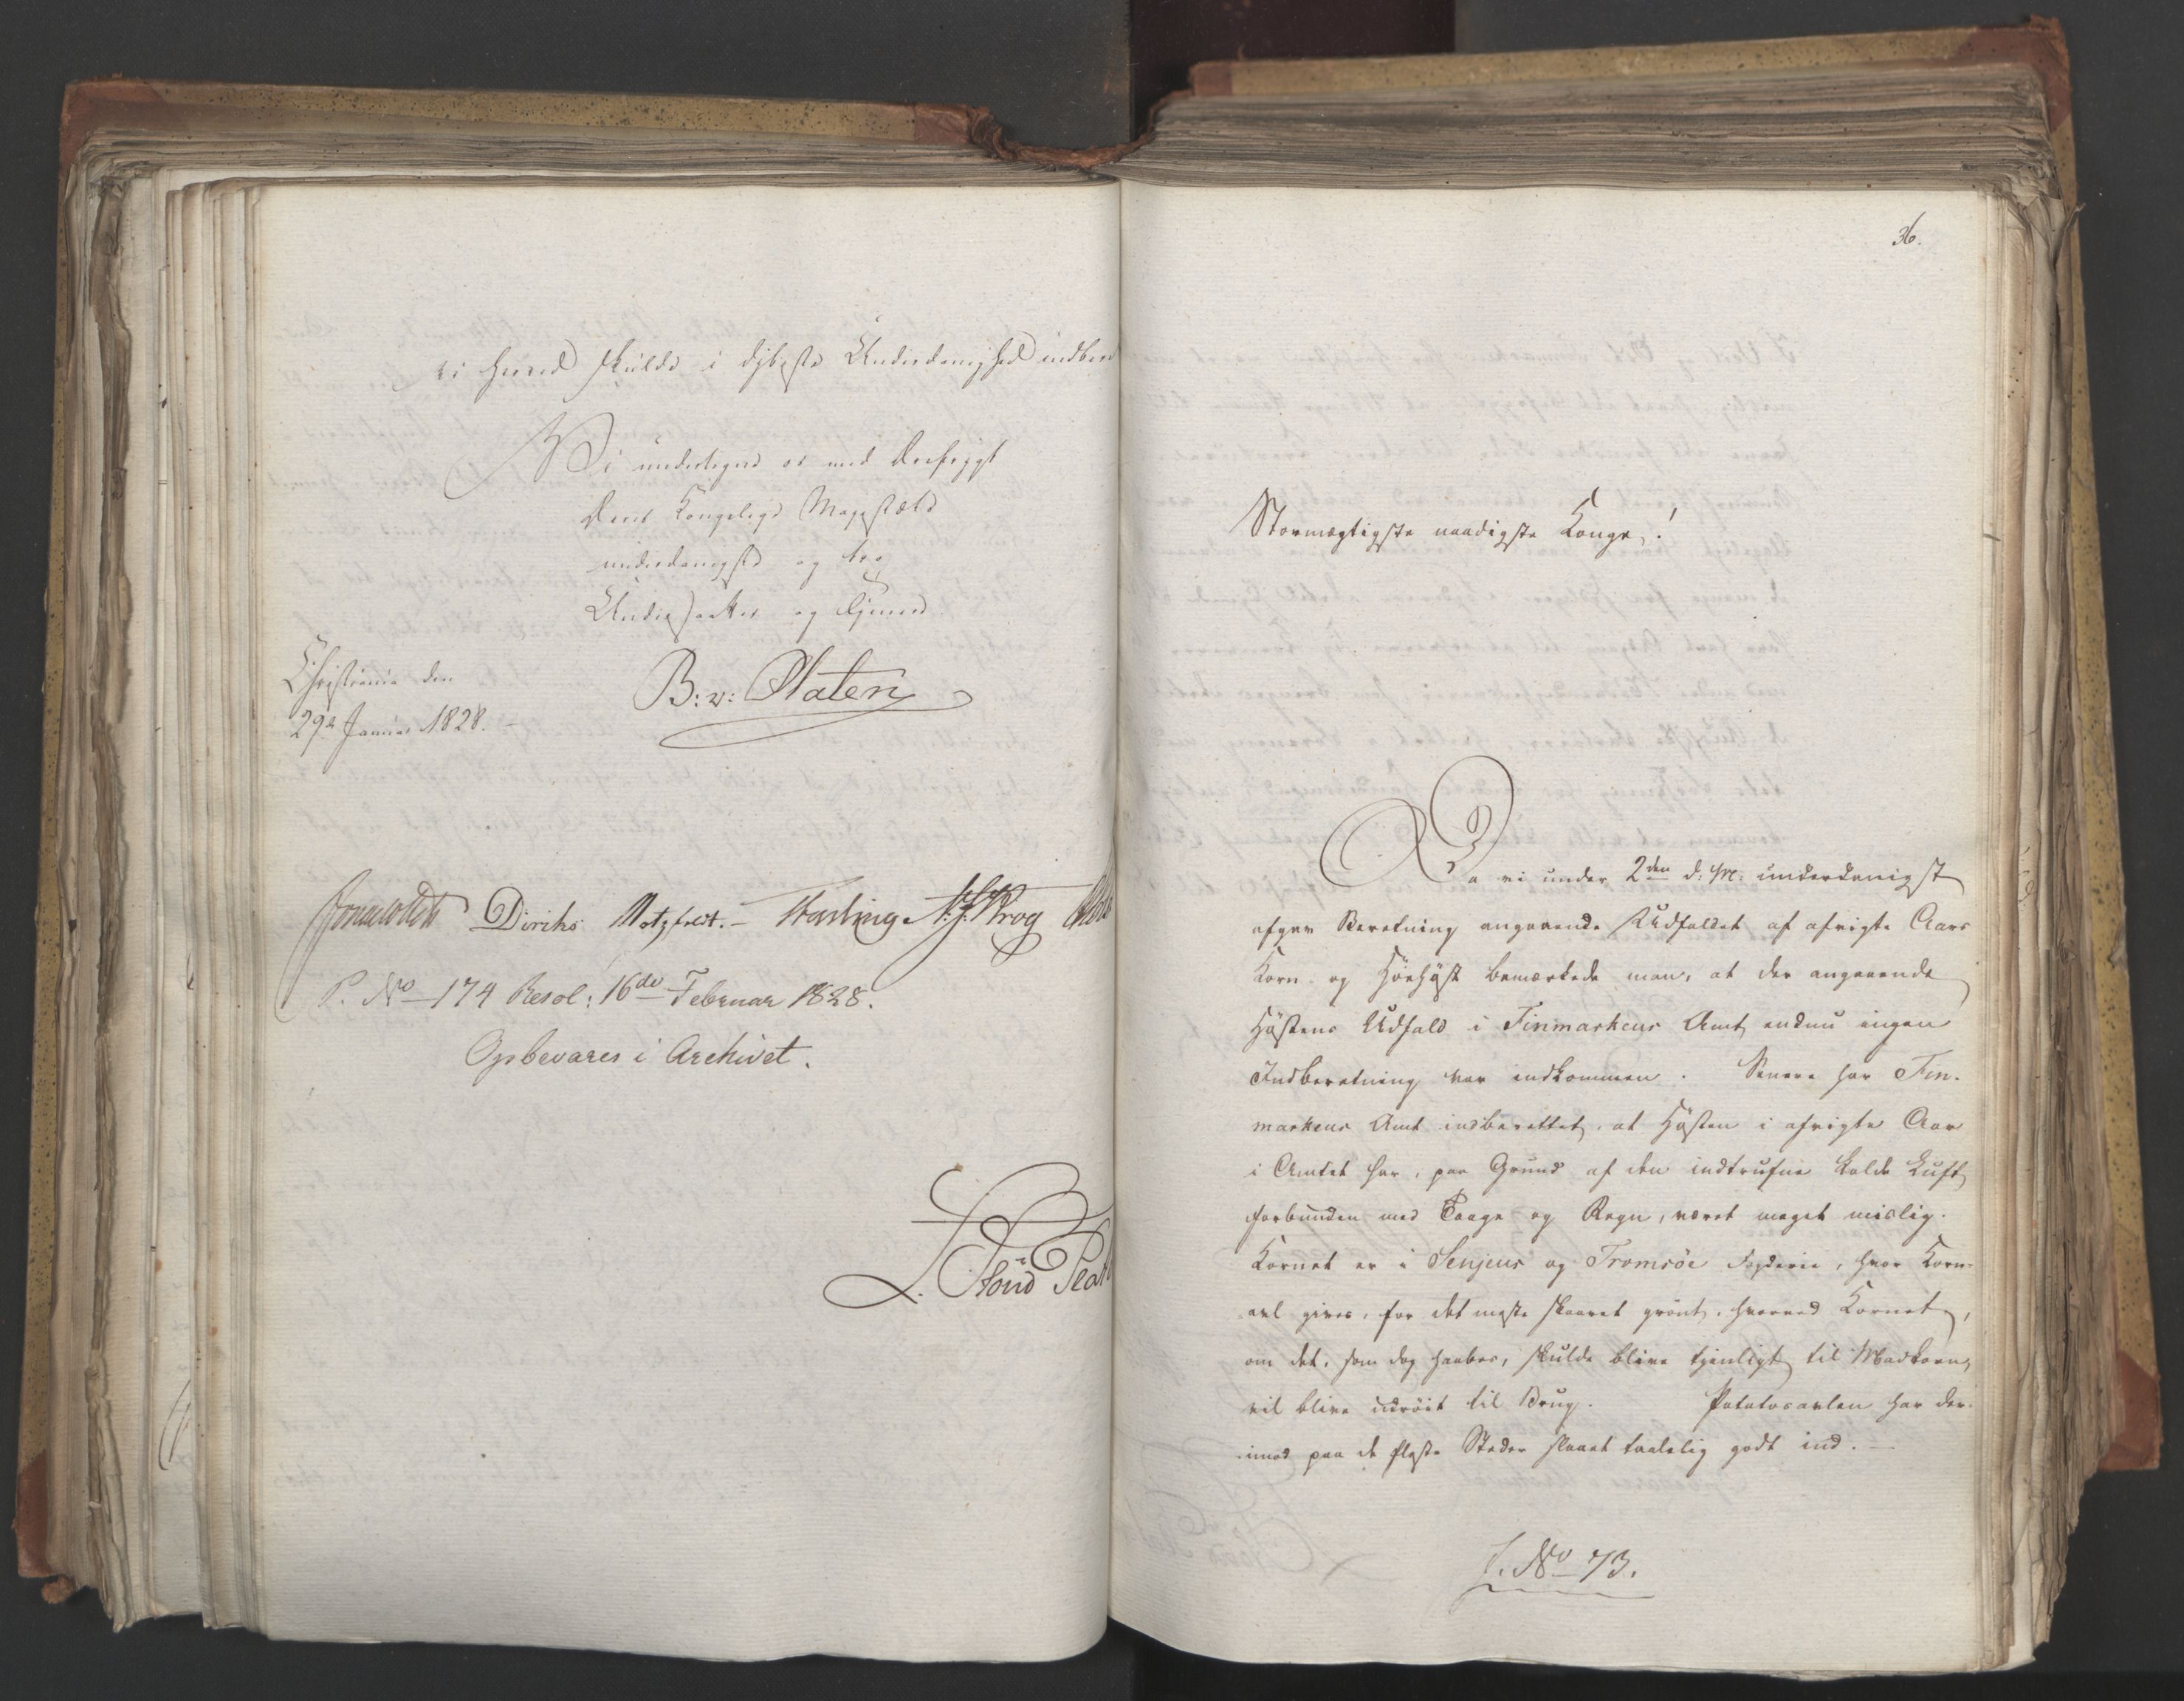 vi herved skulde i dybeste Underdanighed indbe
Vi undertegne os med Ærefrygt
Deres Kongelige Majestæts
underdanigste og tro
Undersaatter og tjenere
Christiania den
29de Januar 1828.
B: v: Platen
Jonas Collett Diriks Motzfeldt. Fasting. A. J. Krog
P. No 174 Resol: 16de Februar 1828.
Opbevares i Archivet.
36.
Stormægtigste naadigste Konge!
Da vi under 2den d: M: underdanigst
afgav Beretning angaaende Udfaldet af afvigte Aars
Korn- og Höehöst bemærkede man, at der angaaende
Höstens Udfald i Finmarkens Amt endnu ingen
Indberetning var indkommen. Senere har Fin-
markens Amt indberettet, at Hösten i afvigte Aar
i Amtet har, paa Grund af den indtrufne kolde Luft
forbunden med Taage og Regn, været meget mislig.
Kornet er i Senjens og Tromsöe Fogderie, hvor Korn-
avl gives, for det meste skaaret grönt, hvorved Kornet,
om det, som dog haabes, skulde blive tjenligt til Madkorn,
vil blive udröit til Brug. Potatosavlen har der-
imod paa de fleste Steder slaaet taalelig godt ind. —
J. No 73.